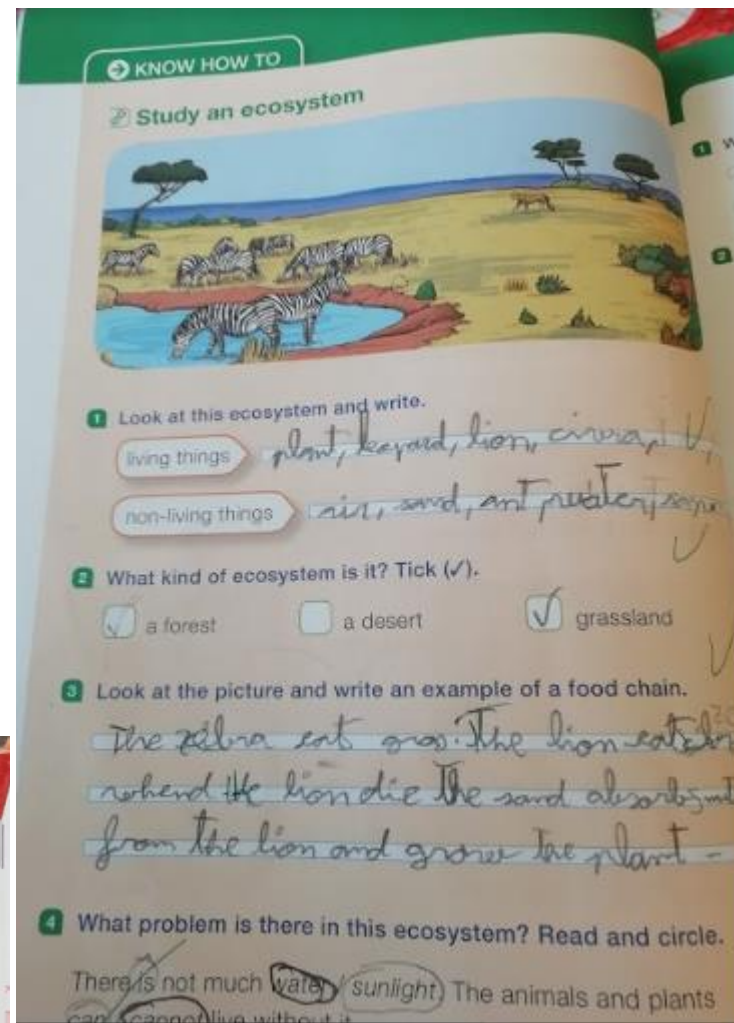 KNOW HOW TO
Study an ecosystem
1 Look at this ecosystem and write.
living things plant, leopard, lion,
non-living things air, sand, water,
2 What kind of ecosystem is it? Tick (✓).
a forest a desert ✓ grassland
3 Look at the picture and write an example of a food chain.
The zebra eat gras. The lion eat
the lion die the sand
from the lion and grow the plant
4 What problem is there in this ecosystem? Read and circle.
There is not much water / sunlight. The animals and plants
can / cannot live without it.
1
2